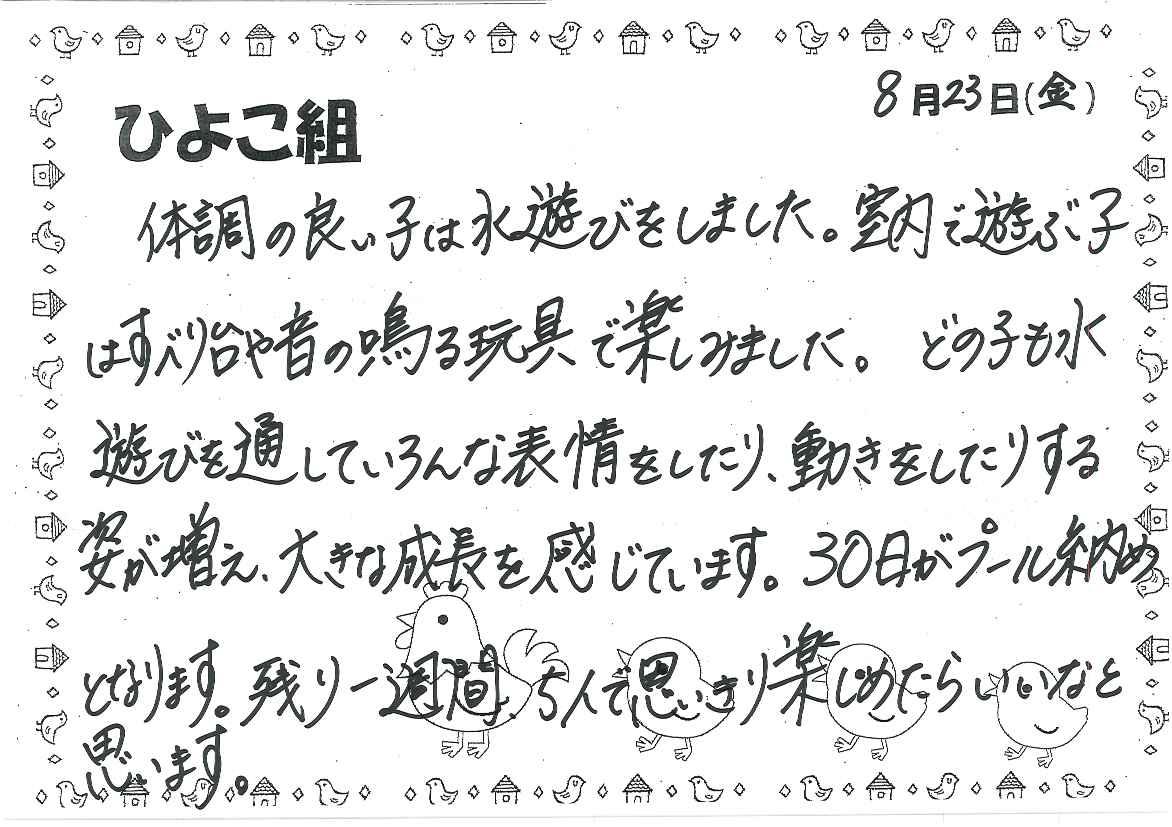 8月23日(金)
ひよこ組
体調の良い子は水遊びをしました。室内で遊ぶ子
はすべり台や音の鳴る玩具で楽しみました。どの子も水
遊びを通していろんな表情をしたり、動きをしたりする
姿が増え、大きな成長を感じています。30日がプール納め
となります。残り一週間、5人で思いきり楽しめたらいいなと
思います。